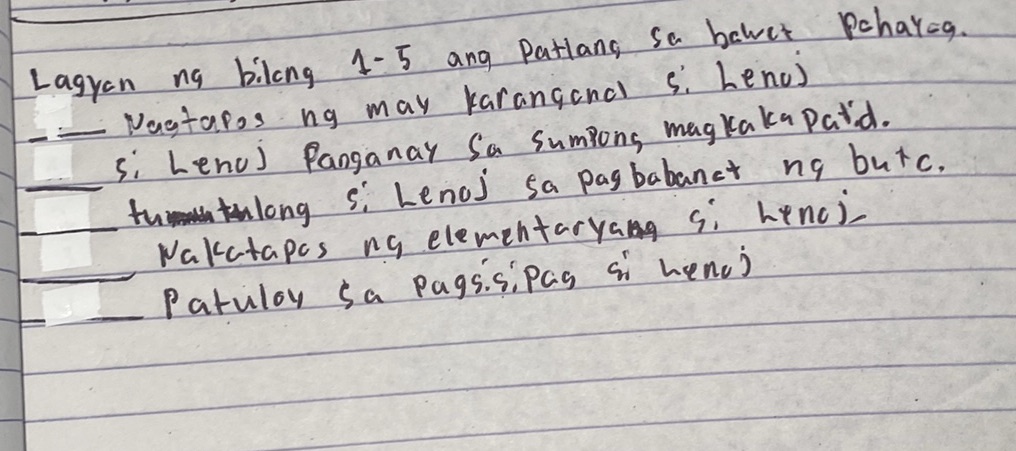 Lagyan ng bilang 1-5 ang Patlang sa bawat Pahayag.
Nagtapos ng may karanganal si Lenoj
si Lenoj Panganay sa sumpong magkakapatid.
tumutulong si Lenoj sa pagbabanat ng buto.
Nakatapos ng elementaryang si Lenoj
Patuloy sa pagsisipag si Lenoj